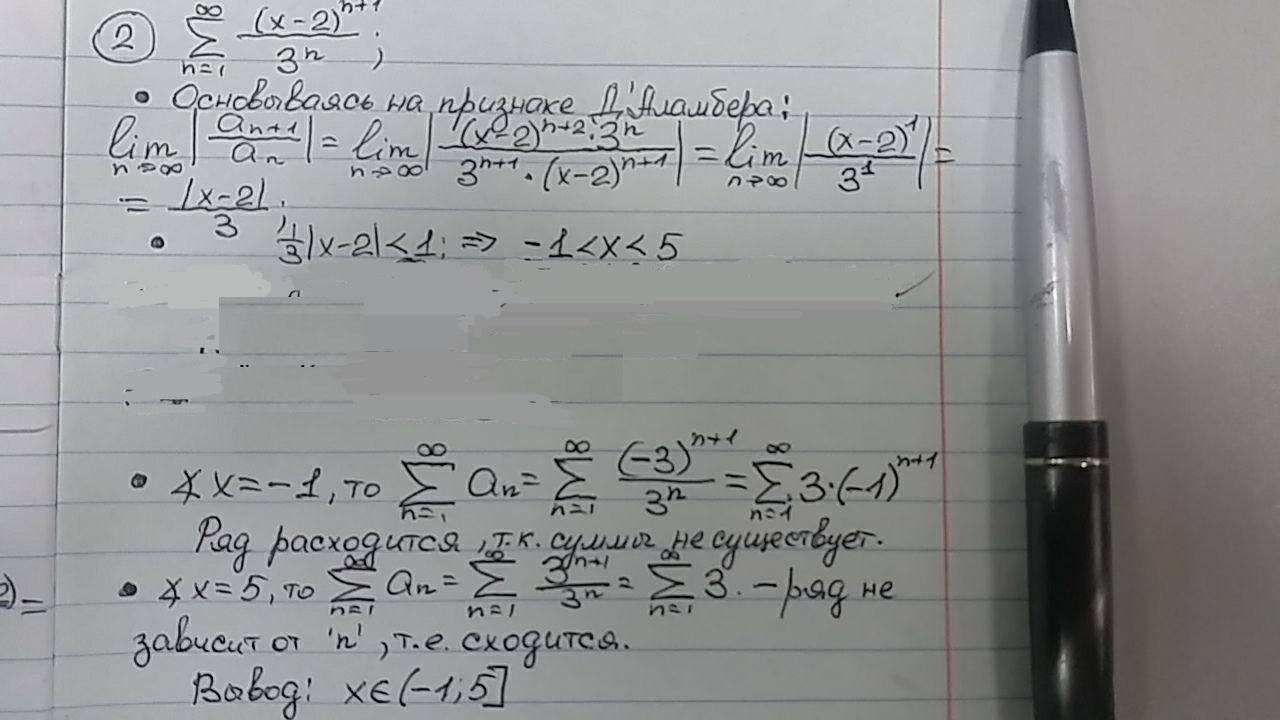 ② ∑_{n=1}^{∞} (x-2)^{n+1} / 3^n ;
• Основываясь на признаке Д'Аламбера:
lim_{n→∞} |a_{n+1} / a_n| = lim_{n→∞} |(x-2)^{n+2} · 3^n / 3^{n+1} · (x-2)^{n+1}| = lim_{n→∞} |(x-2)^1 / 3^1| =
= |x-2| / 3 ;
• 1/3 |x-2| < 1; => -1 < x < 5
• ∢ x = -1, то ∑_{n=1}^{∞} a_n = ∑_{n=1}^{∞} (-3)^{n+1} / 3^n = ∑_{n=1}^{∞} 3·(-1)^{n+1}
Ряд расходится, т.к. суммы не существует.
• ∢ x = 5, то ∑_{n=1}^{∞} a_n = ∑_{n=1}^{∞} 3^{n+1} / 3^n = ∑_{n=1}^{∞} 3. – ряд не
зависит от 'n', т.е. сходится.
Вывод: x ∈ (-1; 5]